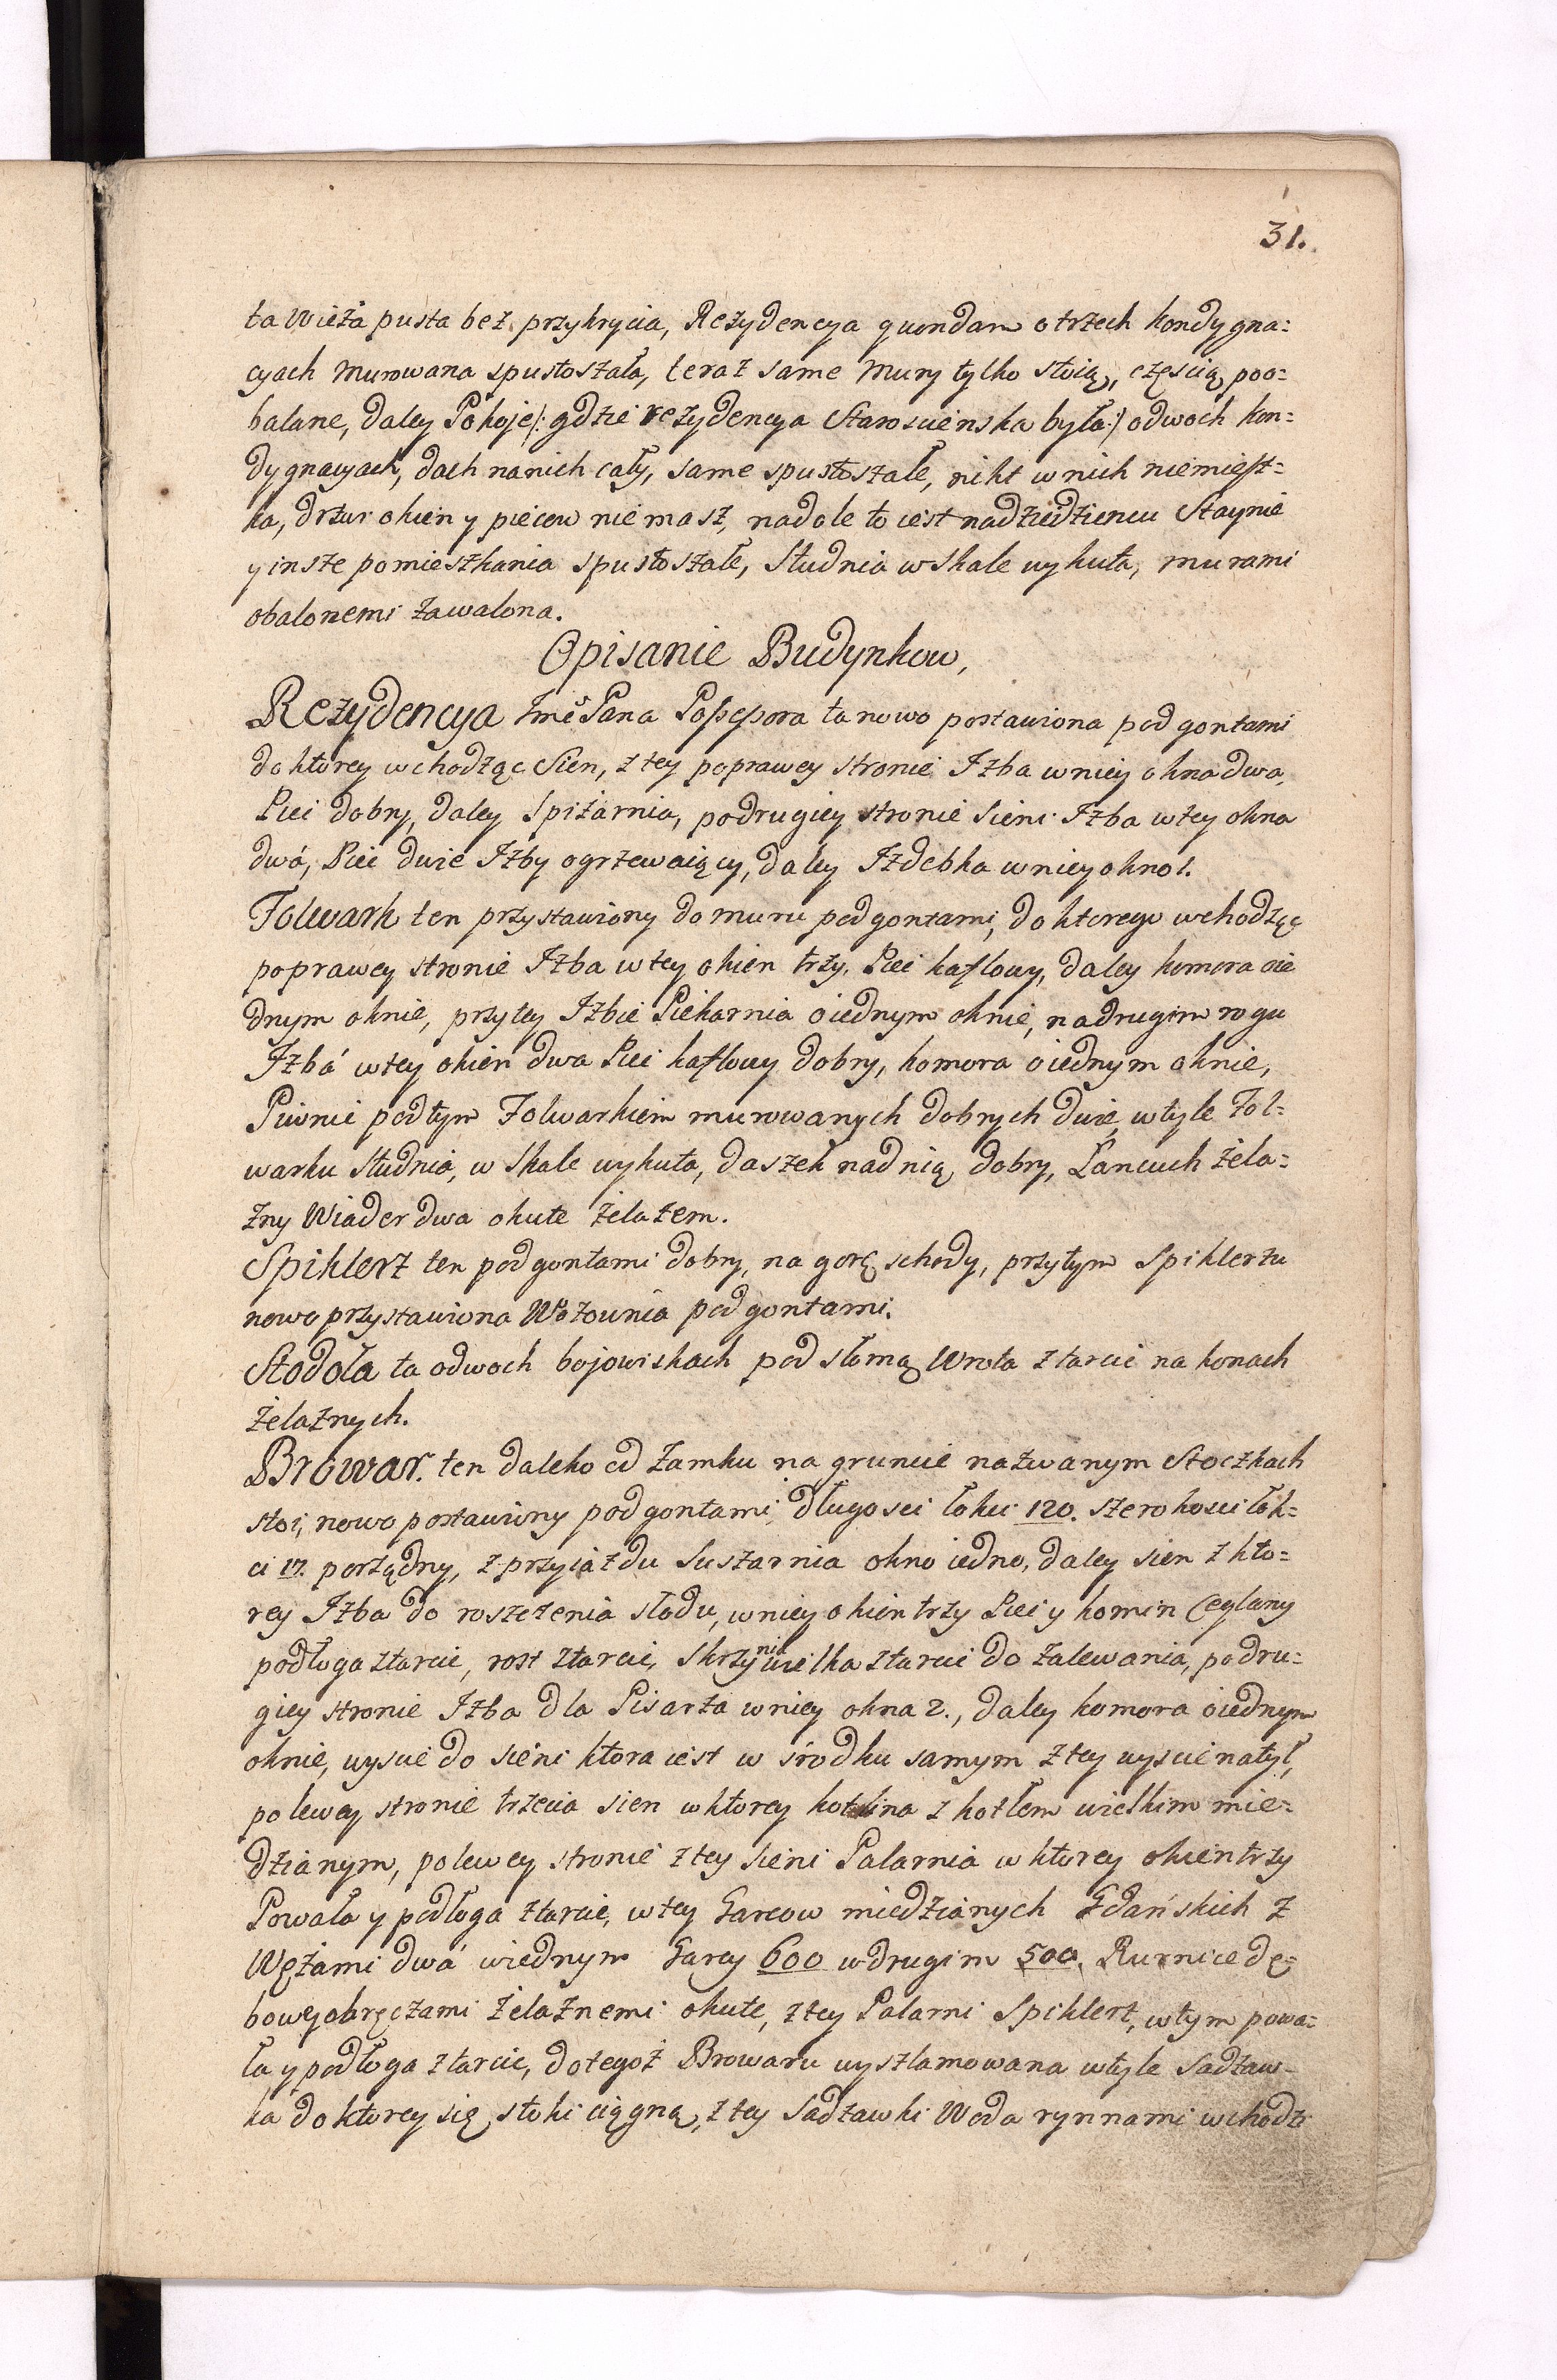 31.
ta Wieża pusta bez przykrycia, Rezydencya quondam o trzech kondygna=
cyach murowana spustoszała, teraz same mury tylko stoią, częscią poo=
balane, daley Pokoje /: gdzie rezydencya Staroscienska była :/ o dwoch kon=
dygnacyach, dach na nich cały, same spustoszałe, nikt w nich niemiesz=
ka, drzwi okien y piecow nie masz, nadole to iest nadziedziencu Staynie
y insze pomieszkania spustoszałe, Studnia w skale wykuta, murami
obalonemi zawalona.
Opisanie Budynkow,
Rezydencya Jmć Pana Possessora ta nowo postawiona pod gontami
do ktorey wchodząc Sien, z tey po prawey stronie Izba w niey okna dwa,
Piec dobry, daley Spiżarnia, po drugiey stronie Sieni Izba w tey okna
dwá, Piec dwie Izby ogrzewaiący, daley Izdebka w niey okno 1.
Folwark ten przystawiony do muru pod gontami, do ktorego wchodząc
po prawey stronie Izba w tey okien trzy, Piec kaflowy, daley komora o ie
dnym oknie, przy tey Izbie Piekarnia o iednym oknie, na drugim rogu
Izbá w tey okien dwa Piec kaflowy dobry, komora o iednym oknie,
Piwnic pod tym Folwarkiem murowanych dobrych dwie, w tyle Fol=
warku studnia, w skale wykuta, daszek nad nią dobry, Łancuch żela=
zny Wiader dwa okute żelazem.
Spihlerz ten pod gontami dobry, na gorę schody, przy tym Spihlerzu
nowo przystawiona Wozownia pod gontami.
Stodoła ta o dwoch bojowiskach pod słomą Wrota z tarcic na konach
żelaznych.
Browar. ten daleko od Zamku na gruncie nazwanym Stoczkach
stoi, nowo postawiony pod gontami, długosci łokci 120. szerokosci łok=
ci 17. porządny, z przyiazdu Suszarnia okno iedno, daley sien z kto=
rey Izba do roszczenia słodu, w niey okien trzy Piec y komin Ceglany
podłoga z tarcic, rost z tarcic, Skrzynia wielka z tarcic do zalewania, po dru=
giey stronie Izba dla Pisarza w niey okna 2., daley komora o iednym
oknie, wyscie do sieni ktora iest w środku samym z tey wyscie na tył,
po lewey stronie trzecia sien w ktorey kotlina z kotłem wielkim mie=
dzianym, po lewey stronie z tey Sieni Palarnia w ktorey okien trzy
Powała y podłoga z tarcic, w tey Garcow miedzianych Gdańskich z
Wężami dwá w iednym Garcy 600 w drugim 500. Rurnice dę=
bowe obręczami żelaznemi okute, z tey Palarni Spihlerz, w tym powa=
ła y podłoga z tarcic, do tegoż Browaru wyszlamowana w tyle Sadzaw=
ka do ktorey się stoki ciągną, z tey Sadzawki Woda rynnami wchodzi